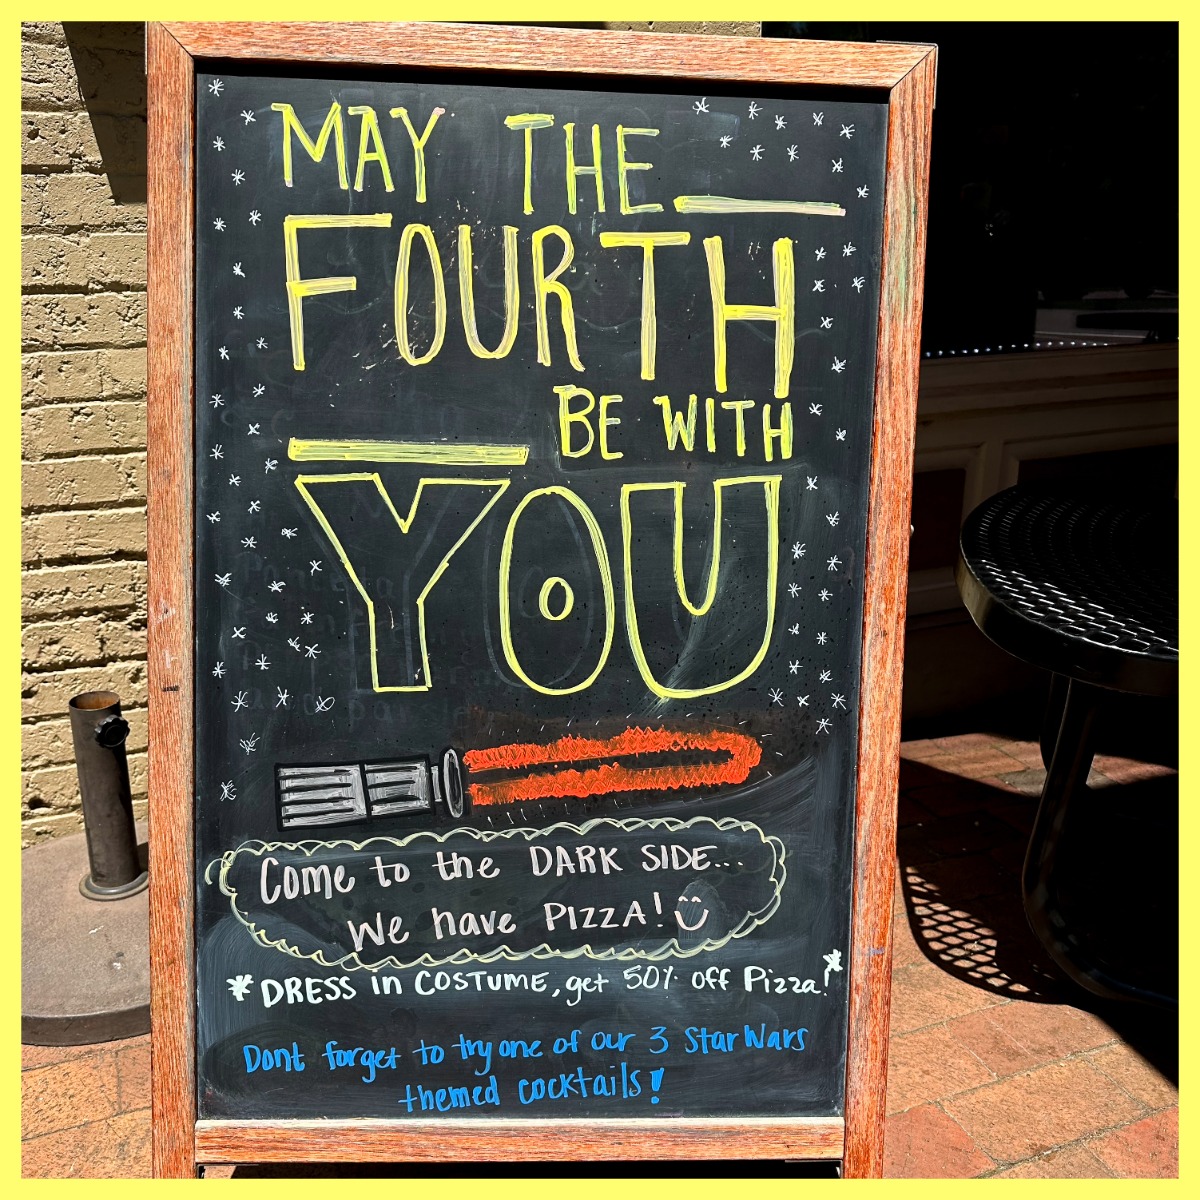 MAY THE
FOURTH
BE WITH
YOU
Come to the DARK SIDE...
We have PIZZA!
*DRESS in COSTUME, get 50% off Pizza!*
Dont forget to try one of our 3 Star Wars
themed cocktails!